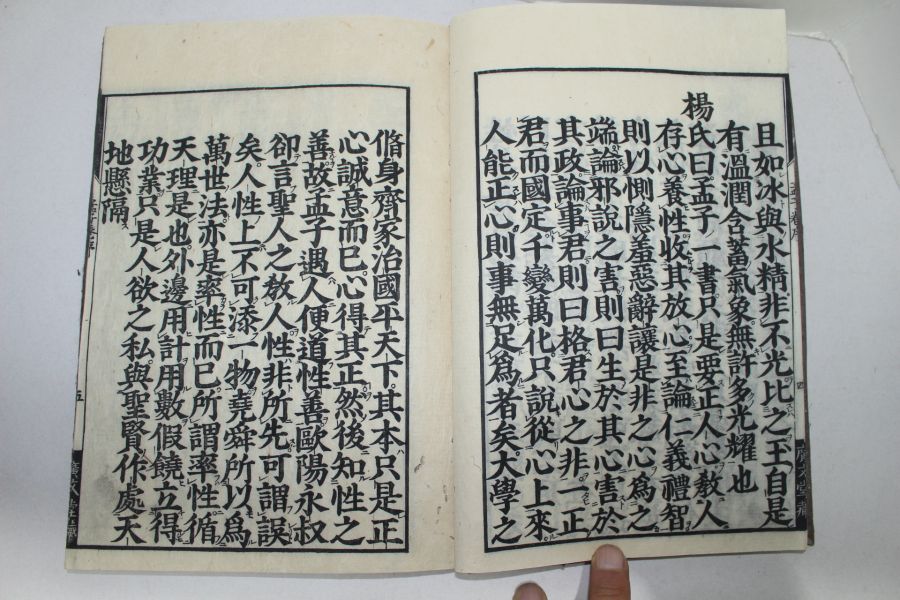 且如冰與水精非不光比之玉自是
有溫潤含蓄氣象無許多光耀也
楊氏曰孟子一書只是要正人心教人
存心養性收其放心至論仁義禮智
則以惻隱羞惡辭讓是非之心爲之
端論邪說之害則曰生於其心害於
其政論事君則曰格君心之非一正
君而國定千變萬化只說從心上來
人能正心則事無足爲者矣大學之
脩身齊家治國平天下其本只是正
心誠意而已心得其正然後知性之
善故孟子遇人便道性善歐陽永叔
卻言聖人之教人性非所先可謂誤
矣人性上不可添一物堯舜所以爲
萬世法亦是率性而已所謂率性循
天理是也外邊用計用數假饒立得
功業只是人欲之私與聖賢作處天
地懸隔
四
五